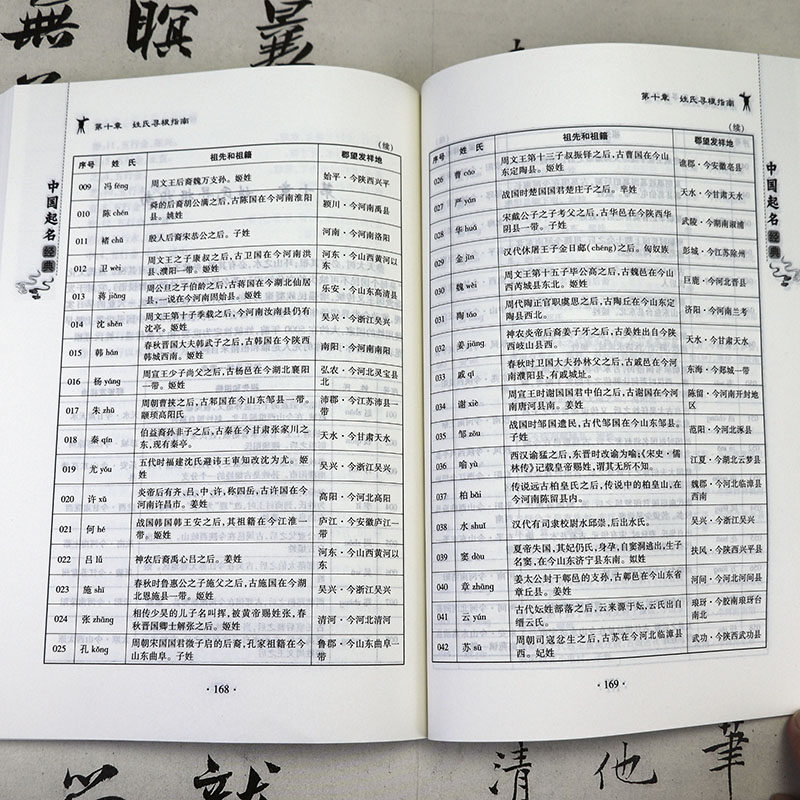 無
瞑
第十章 姓氏寻根指南
(续)
序号 姓氏 祖先和祖籍 郡望发祥地
009 冯 féng 周文王后裔魏万支孙。姬姓 始平·今陕西兴平
010 陈 chén 舜的后裔胡公满之后,古陈国在今河南淮阳
县。姚姓 颍川·今河南禹县
011 褚 chǔ 殷人后裔宋恭公之后。子姓 河南·今河南洛阳
012 卫 wèi 周文王之子康叔之后,古卫国在今河南淇
县、濮阳一带。姬姓 河东·今山西黄河以
东
013 蒋 jiǎng 周公旦之子伯龄之后,古蒋国在今湖北仙居
县,一说在今河南固始县。姬姓 乐安·今山东高清县
014 沈 shěn 周文王第十子季载之后,今河南汝南县仍有
沈亭。姬姓 吴兴·今浙江吴兴
015 韩 hán 春秋晋国大夫韩武子之后,古韩国在今陕西
韩城西南。姬姓 南阳·今河南南阳
016 杨 yáng 周宣王少子尚父之后,古杨邑在今湖北襄阳
一带。姬姓 弘农·今河北灵宝县
北
017 朱 zhū 周朝曹挟之后,古邾国在今山东邹县一带。
颛顼高阳氏 沛郡·今江苏沛县一
带
018 秦 qín 伯益裔孙非子之后,古秦在今甘肃张家川之
东,现有秦亭。 天水·今甘肃天水
019 尤 yóu 五代时福建沈氏避讳王审知改沈为尤。姬
姓 吴兴·今浙江吴兴
020 许 xǔ 炎帝后有齐、吕、申、许,称四岳,古许国在今
河南许昌市。姜姓 高阳·今河北高阳
021 何 hé 战国韩国韩王安之后,其祖籍在今江淮一
带。姬姓 庐江·今安徽庐江一
带
022 吕 lǚ 神农后裔禹心吕之后。姜姓 河东·今山西黄河以
东
023 施 shī 春秋时鲁惠公之子施父之后,古施国在今湖
北恩施县一带。姬姓 吴兴·今浙江吴兴
024 张 zhāng 相传少昊的儿子名叫挥,被黄帝赐姓张,春
秋晋国卿士解张之后。姬姓 清河·今河北清河
025 孔 kǒng 周朝宋国国君微子启的后裔,孔家祖籍在今
山东曲阜。子姓 鲁郡·今山东曲阜一
带
·168·
中国起名经典
第十章 姓氏寻根指南
(续)
序号 姓氏 祖先和祖籍 郡望发祥地
026 曹 cáo 周文王第十三子叔振铎之后,古曹国在今山
东定陶县。姬姓 谯郡·今安徽亳县
027 严 yán 战国时楚国国君楚庄子之后。芈姓 天水·今甘肃天水
028 华 huà 宋戴公子之子考父之后,古华邑在今陕西华
阴县一带。子姓 武陵·今湖南溆浦
029 金 jīn 汉代休屠王子金日䃅(chéng)之后。匈奴族 彭城·今江苏除州
030 魏 wèi 周文王第十五子毕公高之后,古魏邑在今山
西芮城县东北。姬姓 巨鹿·今河北晋县
031 陶 táo 周代陶正官职虞思之后,古陶丘在今山东定
陶县西北。 济阳·今河南兰考
032 姜 jiāng 神农炎帝后裔姜子牙之后,古姜姓出自今陕
西岐山县西。 天水·今甘肃天水
033 戚 qī 春秋时卫国大夫孙林父之后,古戚邑在今河
南濮阳县,有戚城址。 东海·今郯城一带
034 谢 xiè 周宣王时谢国国君申伯之后,古谢国在今河
南唐河县南。姜姓 陈留·今河南开封地
区
035 邹 zōu 战国时邹国遗民,古代邹国在今山东邹县。
子姓 范阳·今河北涿县
036 喻 yù 西汉谕猛之后,东晋时改谕为喻;《宋史·儒
林传》记载皇帝赐姓,谓其无所不知。 江夏·今湖北云梦县
037 柏 bǎi 传说远古柏皇氏之后,传说中的柏皇山,在今
河南陈留县内。 魏郡·今河北临漳县
西南
038 水 shuǐ 汉代有司隶校尉水邱崇,后出水氏。 吴兴·今浙江吴兴
039 窦 dòu 夏帝失国,其妃仍氏,身孕,自窦洞逃出,生子
名窦,在今山东济宁县东南。姒姓 扶风·今陕西兴平县
040 章 zhāng 姜太公封于鄣邑的支孙,古鄣邑在今山东省
章丘县。姜姓 河间·今河北河间县
041 云 yún 古代妘姓部落之后,云来源于妘,云氏出自
缙云氏。 琅玡·今胶南琅玡台
南北
042 苏 sū 周朝司寇忿生之后,古苏在今河北临漳县
西。妃姓 武功·今陕西武功县
·169·
中国起名经典
清
他
筆